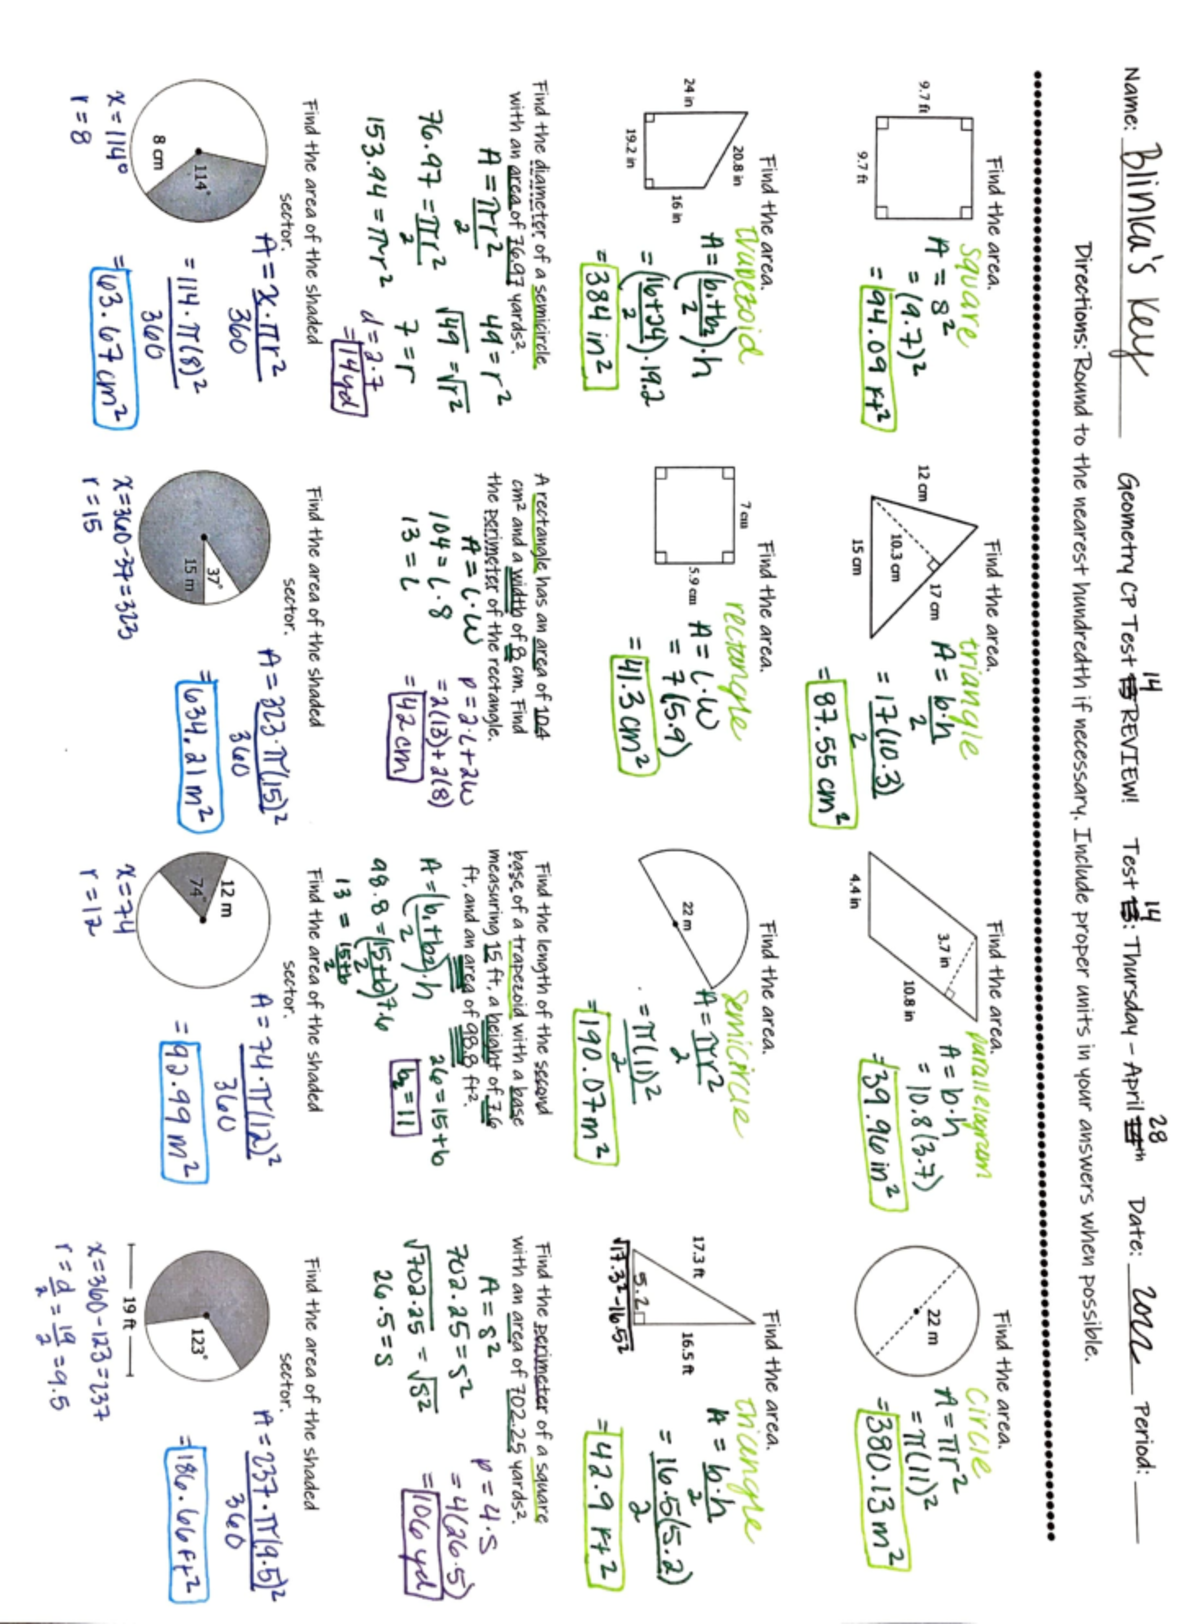 Name: Blinka's Key Geometry CP Test 14 REVIEW! Test 14: Thursday – April 28th Date: Period:
Directions: Round to the nearest hundredth if necessary. Include proper units in your answers when possible.
Find the area.
square
9.7 ft
9.7 ft
A = s²
= (9.7)²
= 94.09 ft²
Find the area.
triangle
12 cm
10.3 cm
17 cm
15 cm
A = b·h
2
= 17(10.3)
2
= 87.55 cm²
Find the area.
parallelogram
3.7 in
4.4 in
10.8 in
A = b·h
= 10.8(3.7)
= 39.96 in²
Find the area.
circle
22 m
A = πr²
= π(11)²
= 380.13 m²
Find the area.
trapezoid
20.8 in
24 in
16 in
19.2 in
A = (b₁+b₂)·h
2
= (16+24)·19.2
2
= 384 in²
Find the area.
rectangle
7 cm
5.9 cm
A = L·W
= 7(5.9)
= 41.3 cm²
Find the area.
semicircle
22 m
A = πr²
2
= π(11)²
2
= 190.07 m²
Find the area.
triangle
17.3 ft
16.5 ft
5.2
√17.3²-16.5²
A = b·h
2
= 16.5(5.2)
2
= 42.9 ft²
Find the diameter of a semicircle
with an area of 76.97 yards².
A = πr²
2
76.97 = πr²
2
153.94 = πr²
49 = r²
√49 = √r²
7 = r
d = 2·7
= 14 yd
A rectangle has an area of 104
cm² and a width of 8 cm. Find
the perimeter of the rectangle.
A = L·W
104 = L·8
13 = L
P = 2·L + 2W
= 2(13) + 2(8)
= 42 cm
Find the length of the second
base of a trapezoid with a base
measuring 15 ft, a height of 7.6
ft, and an area of 98.8 ft².
A = (b₁+b₂)·h
2
98.8 = (15+b)7.6
2
13 = 15+b
2
26 = 15+b
b₂ = 11
Find the perimeter of a square
with an area of 702.25 yards².
A = s²
702.25 = s²
√702.25 = √s²
26.5 = s
P = 4·s
= 4(26.5)
= 106 yd
Find the area of the shaded
sector.
114°
8 cm
x = 114°
r = 8
A = x·πr²
360
= 114·π(8)²
360
= 63.67 cm²
Find the area of the shaded
sector.
37°
15 m
x = 360-37 = 323
r = 15
A = 323·π(15)²
360
= 634.21 m²
Find the area of the shaded
sector.
12 m
74°
x = 74
r = 12
A = 74·π(12)²
360
= 92.99 m²
Find the area of the shaded
sector.
123°
19 ft
x = 360-123 = 237
r = d = 19 = 9.5
2 2
A = 237·π(9.5)²
360
= 186.66 ft²